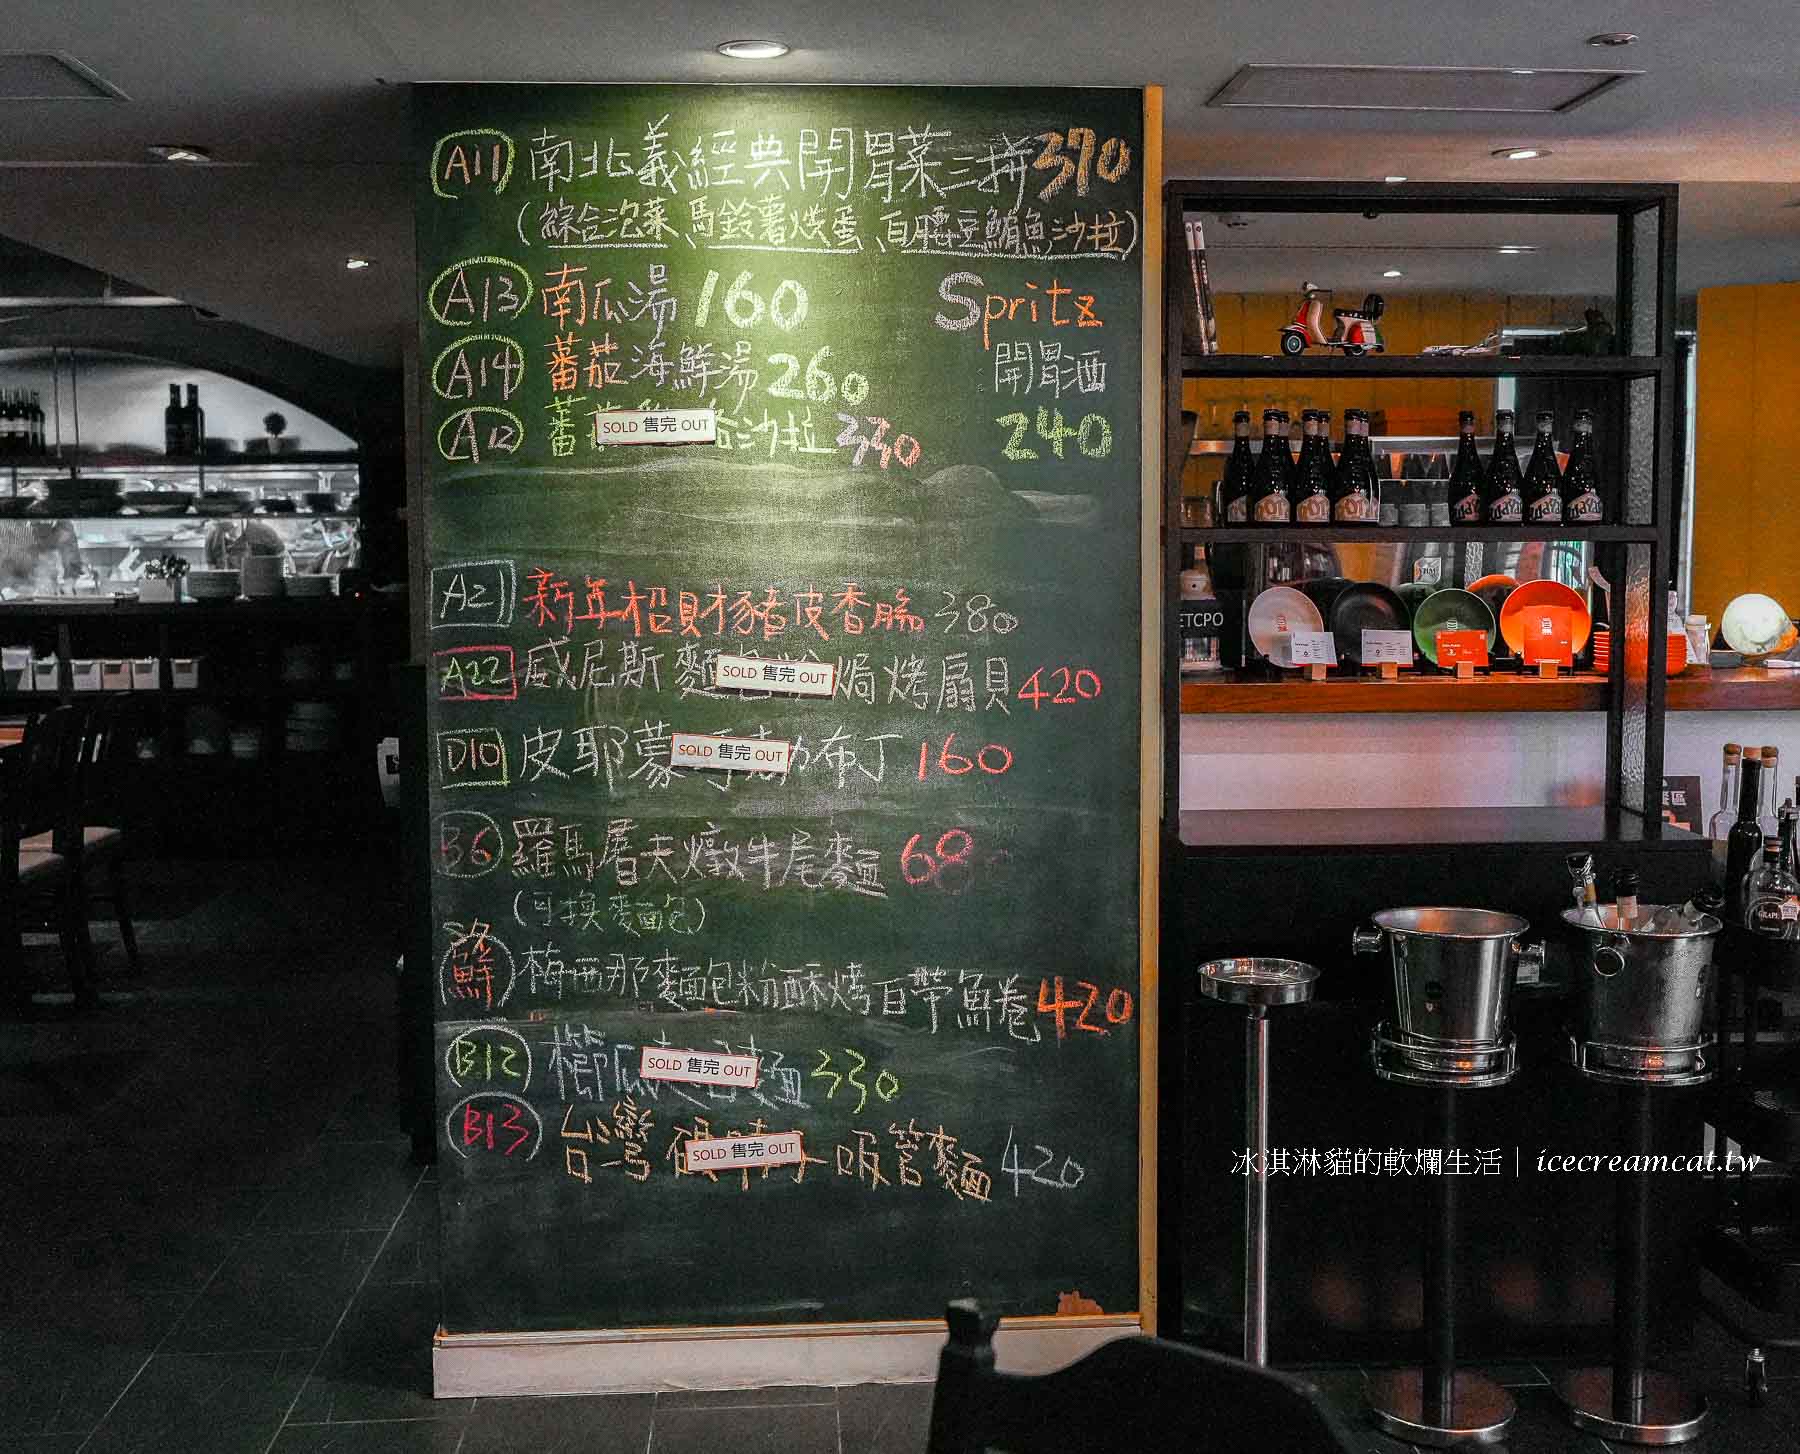 A11 南北義經典開胃菜三拼 370
(綜合泡菜、馬鈴薯烘蛋、白腰豆鮪魚沙拉)
A13 南瓜湯 160
Spritz
A14 蕃茄海鮮湯 260
開胃酒
A12 蕃 SOLD 售完 OUT 沙拉 330
240
A21 新年招財豬皮香腸 380
A22 威尼斯麵 SOLD 售完 OUT 焗烤扇貝 420
D10 皮耶蒙 SOLD 售完 OUT 布丁 160
B6 羅馬屠夫燉牛尾麵 680
(可換麵包)
梅西那麵包粉酥烤白帶魚卷 420
B12 櫛瓜 SOLD 售完 OUT 麵 330
B13 台灣 SOLD 售完 OUT 吸管麵 420
ETCPO
GRAPE
冰淇淋貓的軟爛生活｜icecreamcat.tw